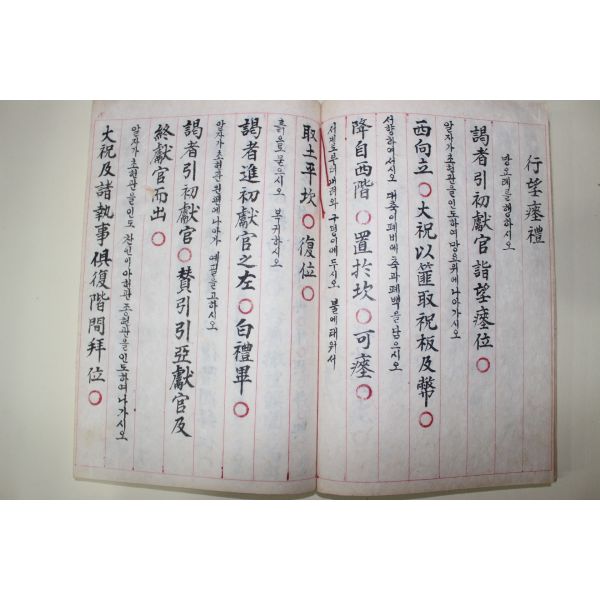 行望瘞禮
망오례를 행하시오
謁者引初獻官詣望瘞位○
알자가 초헌관을 인도하여 망오위에 나아가시오
西向立○大祝以篚取祝板及幣○
서향하여 서시오 대축이 폐비에 축과 폐백을 담으시오
降自西階○置於坎○可瘞○
서계로부터 내려와 구덩이에 두시오 불에 태워서
取土平坎○復位○
흙으로 묻으시오 복귀하시오
謁者進初獻官之左○白禮畢○
알자가 초헌관 왼편에 나아가 예필을 고하시오
謁者引初獻官○贊引引亞獻官及
終獻官而出○
알자가 초헌관을 인도 찬인이 아헌관 종헌관을 인도하여 나가시오
大祝及諸執事俱復階間拜位○